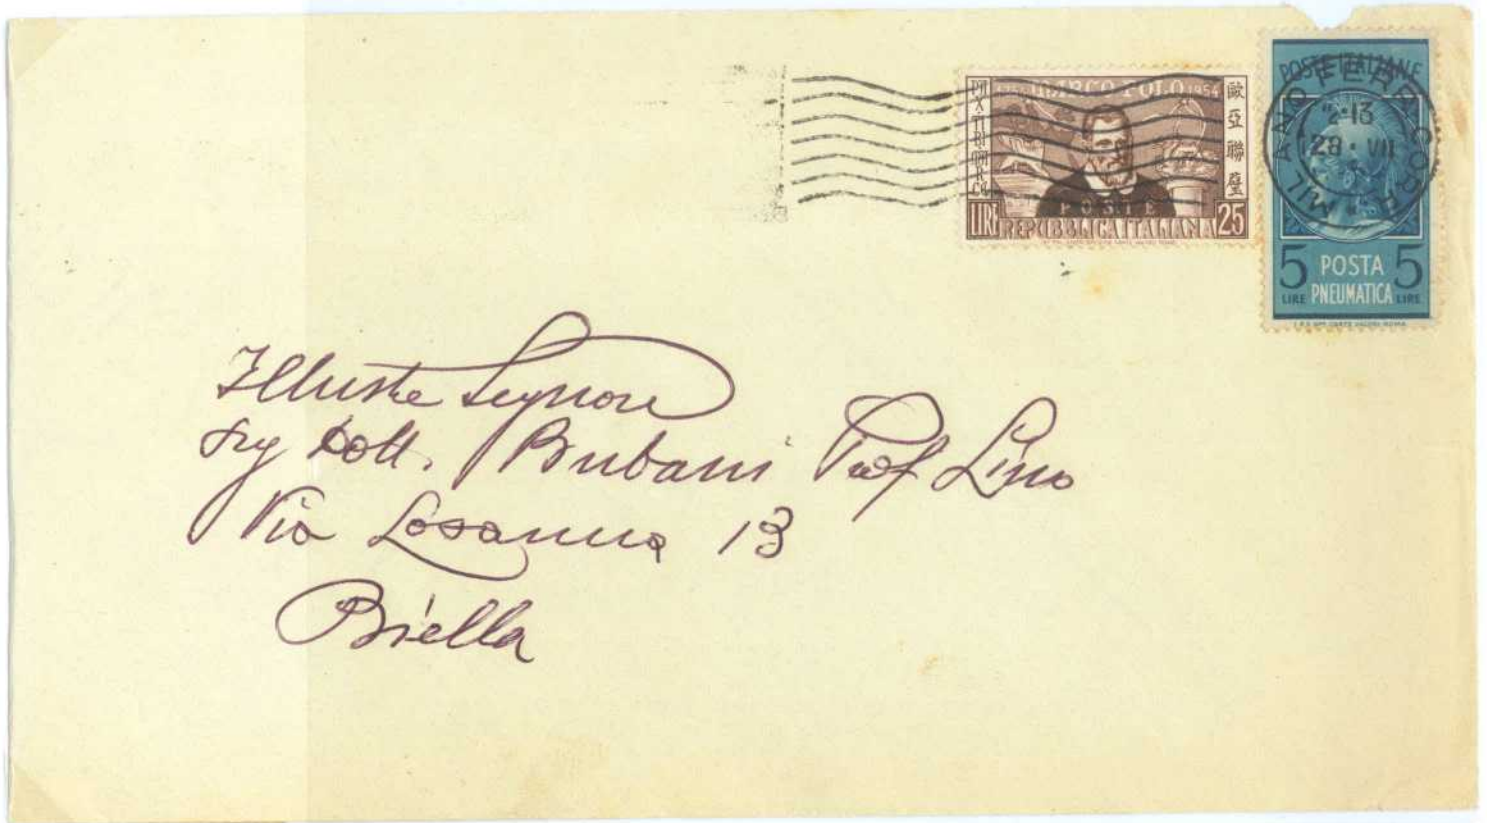 1254 MARCO POLO 1954
歐亞聯璧
POSTE
LIRE REPUBBLICA ITALIANA 25
POSTE ITALIANE
MILANO FERR. CORR.
12-13
28·VII
5 POSTA 5
LIRE PNEUMATICA LIRE
Illustre Signore
Sig Dott. Bubani Prof Lino
Via Losanna 13
Biella